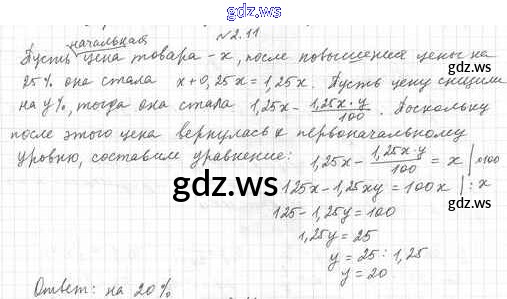 gdz.ws
№2.11
начальная
Пусть цена товара - x, после повышения цены на
25% она стала x + 0,25x = 1,25x. Пусть цену снизили
на y%, тогда она стала 1,25x - 1,25x·y/100. Поскольку
после этого цена вернулась к первоначальному
уровню, составим уравнение: 1,25x - 1,25x·y/100 = x |·100
gdz.ws
gdz.ws
125x - 1,25xy = 100x |:x
125 - 1,25y = 100
1,25y = 25
y = 25 : 1,25
y = 20
gdz.ws
Ответ: на 20%